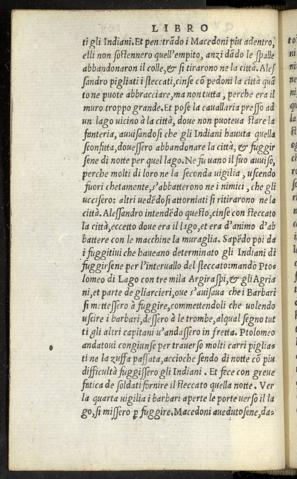 LIBRO
ti gli Indiani. Et pen trādo i Macedoni piu adentro,
elli non sostennero quell'empito, anzi dādo le spalle
abbandonaron il colle, & si tirarono ne la città. Ales
sandro pigliati i steccati, cinse cō pedoni la città quā
to ne puote abbracciare, ma non tutta, perche era il
muro troppo grande. Et pose la cauallaria presso ad
un lago uicino à la città, doue non poteua stare la
fanteria, auuisandosi che gli Indiani hauuta quella
sconfitta, douessero abbandonare la città, & fuggir
sene di notte per quel lago. Ne fu uano il suo auuiso,
perche molti di loro ne la seconda uigilia, uscendo
fuori chetamente, s'abbatterono ne i nimici, che gli
uccisero: altri uedēdosi attorniati si ritirarono ne la
città. Alessandro intendēdo questo, cinse con steccato
la città, eccetto doue era il lago, et era d'animo d'ab
battere con le macchine la muraglia. Sapēdo poi da
i fuggitiui che haueano determinato gli Indiani di
fuggirsene per l'interuallo del steccato: mandò Pto
lomeo di Lago con tre mila Argiraspi, & gli Agria
ni, et parte de gli arcieri, oue s'auisaua che i Barbari
si mettessero à fuggire, commettendoli che uolendo
uscire i barbari, dessero à le trombe, al qual segno tut
ti gli altri capitani u'andassero in fretta. Ptolomeo
andatoui congiunse per trauerso molti carri piglia-
ti ne la zuffa passata, accioche sendo di notte cō piu
difficultà fuggissero gli Indiani. Et fece con greue
fatica de soldati fornire il steccato quella notte. Ver
la quarta uigilia i barbari aperte le porte uerso il la
go, si missero p fuggire. Macedoni auedutosene, da-